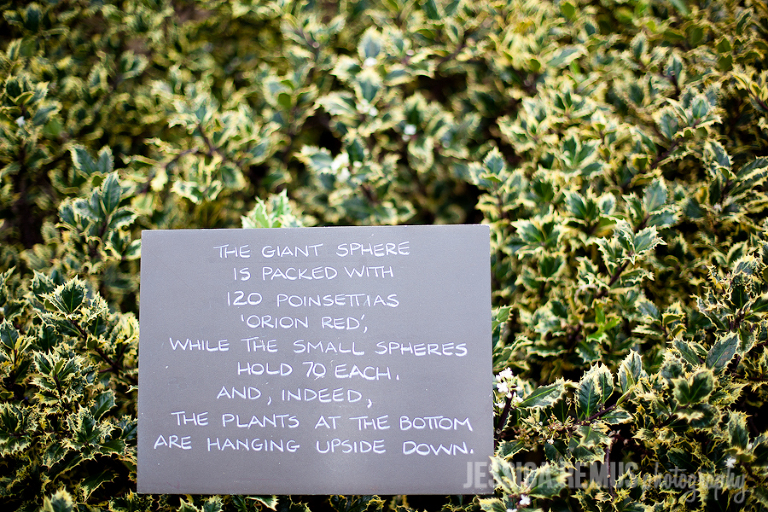 THE GIANT SPHERE
IS PACKED WITH
120 POINSETTIAS
'ORION RED',
WHILE THE SMALL SPHERES
HOLD 70 EACH.
AND, INDEED,
THE PLANTS AT THE BOTTOM
ARE HANGING UPSIDE DOWN.
JESSICA REMUS photography